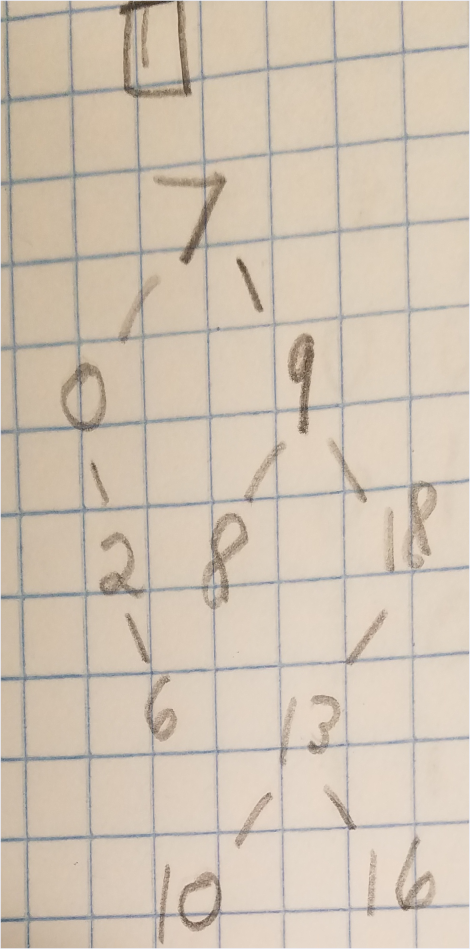 1
7
0 9
2 8 18
6 13
10 16